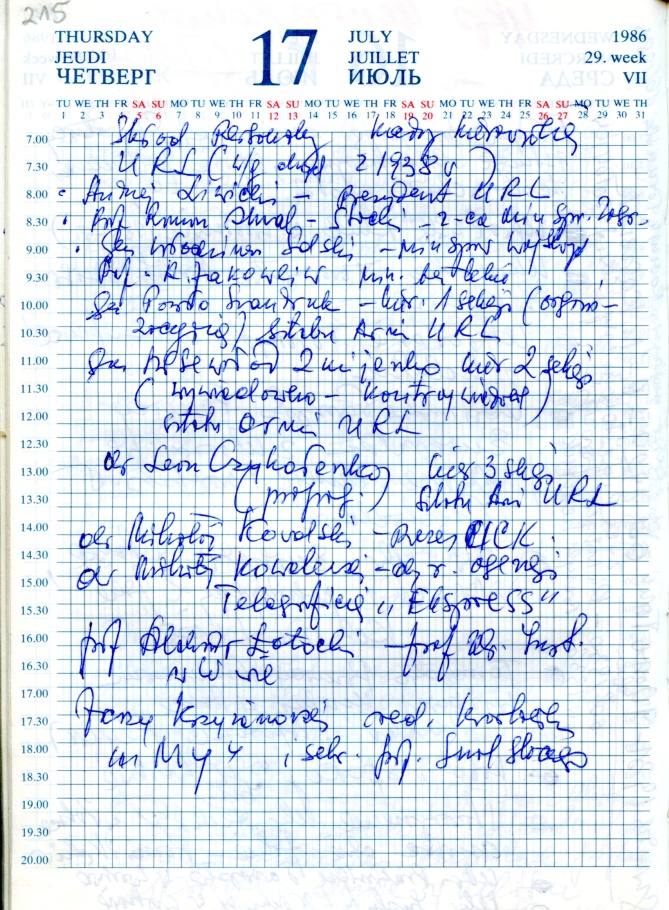 215
THURSDAY 17 JULY 1986
JEUDI JUILLET 29. week
ЧЕТВЕРГ ИЮЛЬ VII
TU WE TH FR SA SU MO TU WE TH FR SA SU MO TU WE TH FR SA SU MO TU WE TH FR SA SU MO TU WE TH
1 2 3 4 5 6 7 8 9 10 11 12 13 14 15 16 17 18 19 20 21 22 23 24 25 26 27 28 29 30 31
7.00 Skład Personalny Kadry
7.30 URL (w/g 2 1938 r)
8.00 Andrej Liwicki – prezydent URL
8.30 Prof. Roman Smal – Stocki – z-ca min spr. Zagr.
9.00 Gen Solski – min spraw wojsk
9.30 Prof. R. Jakowliw min. bez teki
10.00 Gen Pawło Szandruk – kier. 1 sekcji (organi–
10.30 zacyjna) sztabu Armii URL
11.00 Gen kier 2 sekcji
11.30 (wywiadowczo – kontrwywiadow)
12.00 sztabu Armii URL
12.30
13.00 dr Leon Czykałenko kier 3 sekcji
13.30 (propag.) Sztabu Armi URL
14.00 dr Mikołaj Kowalski – Prezes UCK.
14.30 dr Mikołaj – dyr. agencji
15.00
15.30 Telegraficznej „Ekspress"
16.00 prof Łotocki – prof Inst.
16.30 w W-wie
17.00
17.30 Jerzy red.
18.00 i sekr. prof. Smal Stocki
18.30
19.00
19.30
20.00